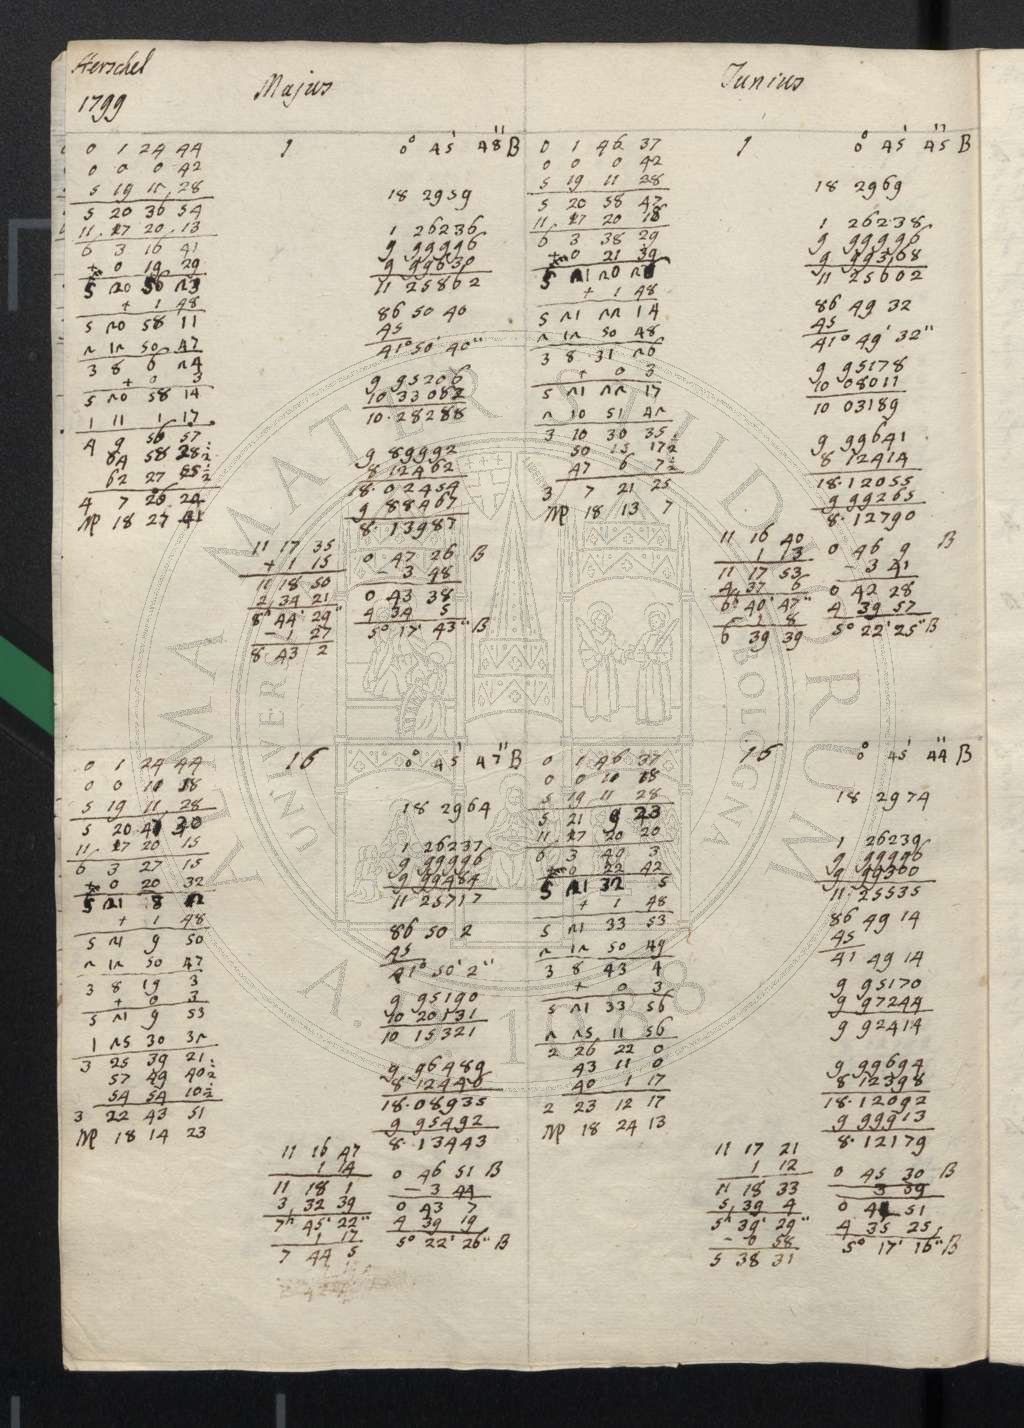 Herschel
1799
Majus
Junius
0 1 24 44
0 0 0 42
5 19 11 28
5 20 36 54
11 27 20 13
6 3 16 41
+ 0 19 29
5 20 56 23
+ 1 48
5 20 58 11
2 12 50 47
3 8 6 24
+ 0 3
5 20 58 14
1 11 1 17
4 9 56 57
64 58 28 1/2
62 27 55 1/2
4 7 26 24
18 27 41
1
0° 45' 48" B
18 2959
1 26236
9 99996
9 99630
11 25862
86 50 40
45
41° 50' 40"
9 95206
10 33082
10.28288
9 89992
8 12462
18.02454
9 88467
8.13987
11 17 35
+ 1 15
11 18 50
2 34 21
8h 44' 29"
- 1 27
8 43 2
0 47 26 B
- 3 48
0 43 38
4 34 5
5° 17' 43" B
0 1 46 37
0 0 0 42
5 19 11 28
5 20 58 47
11 27 20 18
6 3 38 29
+ 0 21 39
5 21 20 26
+ 1 48
5 21 22 14
2 12 50 48
3 8 31 26
+ 0 3
5 21 22 17
2 10 51 42
3 10 30 35
50 15 17 1/2
47 6 7 1/2
3 7 21 25
18 13 7
1
0° 45' 45" B
18 2969
1 26238
9 99996
9 99368
11 25602
86 49 32
45
41° 49' 32"
9 95178
10 08011
10 03189
9 99641
8 12414
18.12055
9 99265
8.12790
11 16 40
1 13
11 17 53
4 37 6
6h 40' 47"
1 8
6 39 39
0 46 9 B
- 3 41
0 42 28
4 39 57
5° 22' 25" B
0 1 24 44
0 0 11 18
5 19 11 28
11 27 20 15
6 3 27 15
+ 0 20 32
5 21 8 2
+ 1 48
5 21 9 50
2 12 50 47
3 8 19 3
+ 0 3
5 21 9 53
1 25 30 32
3 25 39 21
57 49 40 1/2
54 54 10 1/2
3 22 43 51
18 14 23
16
0° 45' 47" B
18 2964
1 26237
9 99996
9 99484
11 25717
86 50 2
45
41° 50' 2"
9 95190
10 20131
10 15321
9 96489
8 12446
18.08935
9 95492
8.13443
11 16 47
1 14
11 18 1
3 32 39
7h 45' 22"
1 17
7 44 5
0 46 51 B
- 3 44
0 43 7
4 39 19
5° 22' 26" B
0 1 46 37
0 0 11 18
5 19 11 28
5 21 9 23
11 27 20 20
6 3 40 3
+ 0 22 42
5 21 32 5
+ 1 48
5 21 33 53
2 12 50 49
3 8 43 4
+ 0 3
5 21 33 56
2 25 11 56
2 26 22 0
43 11 0
40 1 17
2 23 12 17
18 24 13
16
0° 45' 44" B
18 2974
1 26239
9 99996
9 99300
11 25535
86 49 14
45
41 49 14
9 95170
9 97244
9 92414
9 99694
8 12398
18.12092
9 99913
8.12179
11 17 21
1 12
11 18 33
5 39 4
5h 39' 29"
- 0 58
5 38 31
0 45 30 B
3 39
0 41 51
4 35 25
5° 17' 16" B
ALMA MATER STUDIORUM
UNIVERSITÀ
BOLOGNA
A.D. 1088